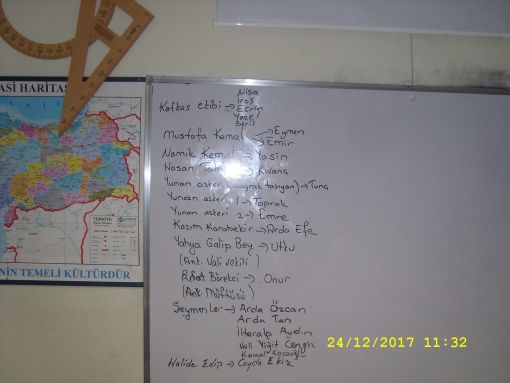 ASİ HARİTAS
TÜRKİYE
NİN TEMELİ KÜLTÜRDÜR
Nisa
Kafkas ekibi → Ecrin
Mustafa Kemal → Eymen
Emir
Namık Kemal → Yasin
Hasan → Kıvanç
Yunan asteri (bayrak taşıyan) → Tuna
Yunan asteri 1 → Toprak
Yunan asteri 2 → Emre
Kazım Karabekir → Arda Efe
Yahya Galip Bey → Utku
(Ank. Vali vekili)
Rıfat Börekçi → Onur
(Ank. Müftüsü)
Seymenler → Arda Özcan
Arda Tan
İlteralp Aydın
Veli Yiğit Cengiz
Kemal
Halide Edip → Ceyda Ekiz
24/12/2017 11:32